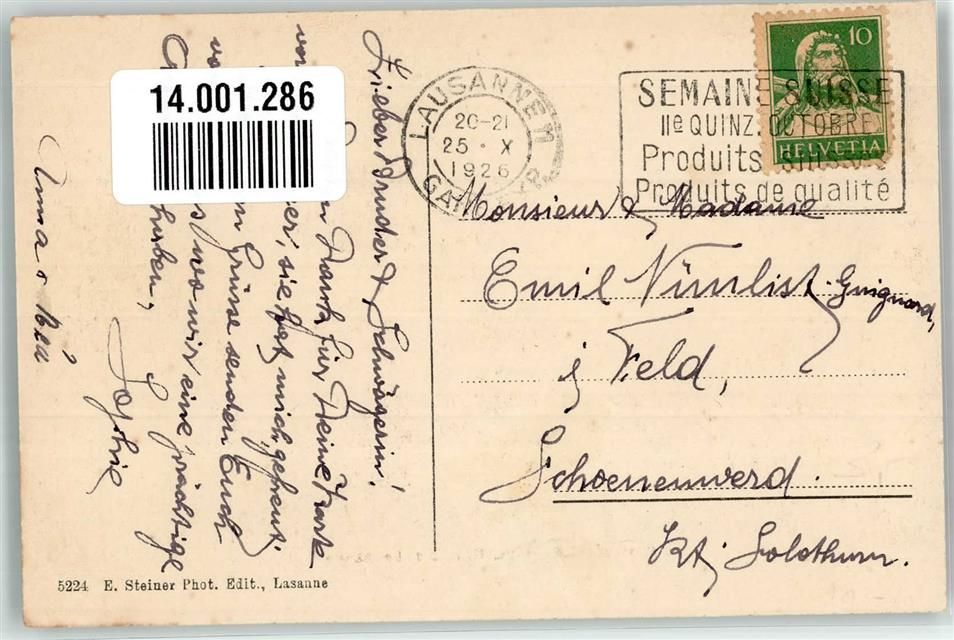 14.001.286
LAUSANNE 11
20-21
25. X
1926
GARE
10
HELVETIA
SEMAINE SUISSE
IIe QUINZ. OCTOBRE
Produits suisses
Produits de qualité
Monsieur & Madame
Emil Nünlist-Guignard,
j Feld,
Schoenenwerd.
Kt. Solothurn.
Lieber Bruder & Schwägerin!
Dank für Deine Karte
sie hat mich gefreut.
Grüsse senden Euch
wo wir eine prächtige
haben,
Sophie
Anna &
5224 E. Steiner Phot. Edit., Lasanne